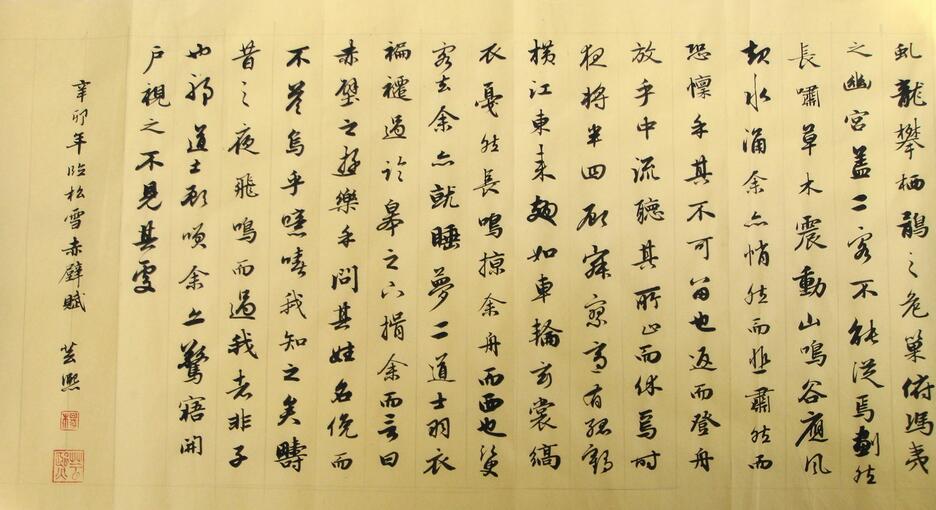 虬龍攀栖鶻之危巢俯馮夷
之幽宮蓋二客不能從焉劃然
長嘯草木震動山鳴谷應風
起水涌余亦悄然而悲肅然而
恐懔乎其不可留也返而登舟
放乎中流聽其所止而休焉時
夜將半四顧寂寥適有孤鶴
橫江東來翅如車輪玄裳縞
衣戛然長鳴掠余舟而西也須臾
客去余亦就睡夢二道士羽衣
褊襹過臨皋之下揖余而言曰
赤壁之遊樂乎問其姓名俛而
不答烏乎噫嘻我知之矣疇
昔之夜飛鳴而過我者非子
也邪道士顧笑余亦驚寤開
戶視之不見其處
辛卯年臨松雪赤壁賦 芸熙